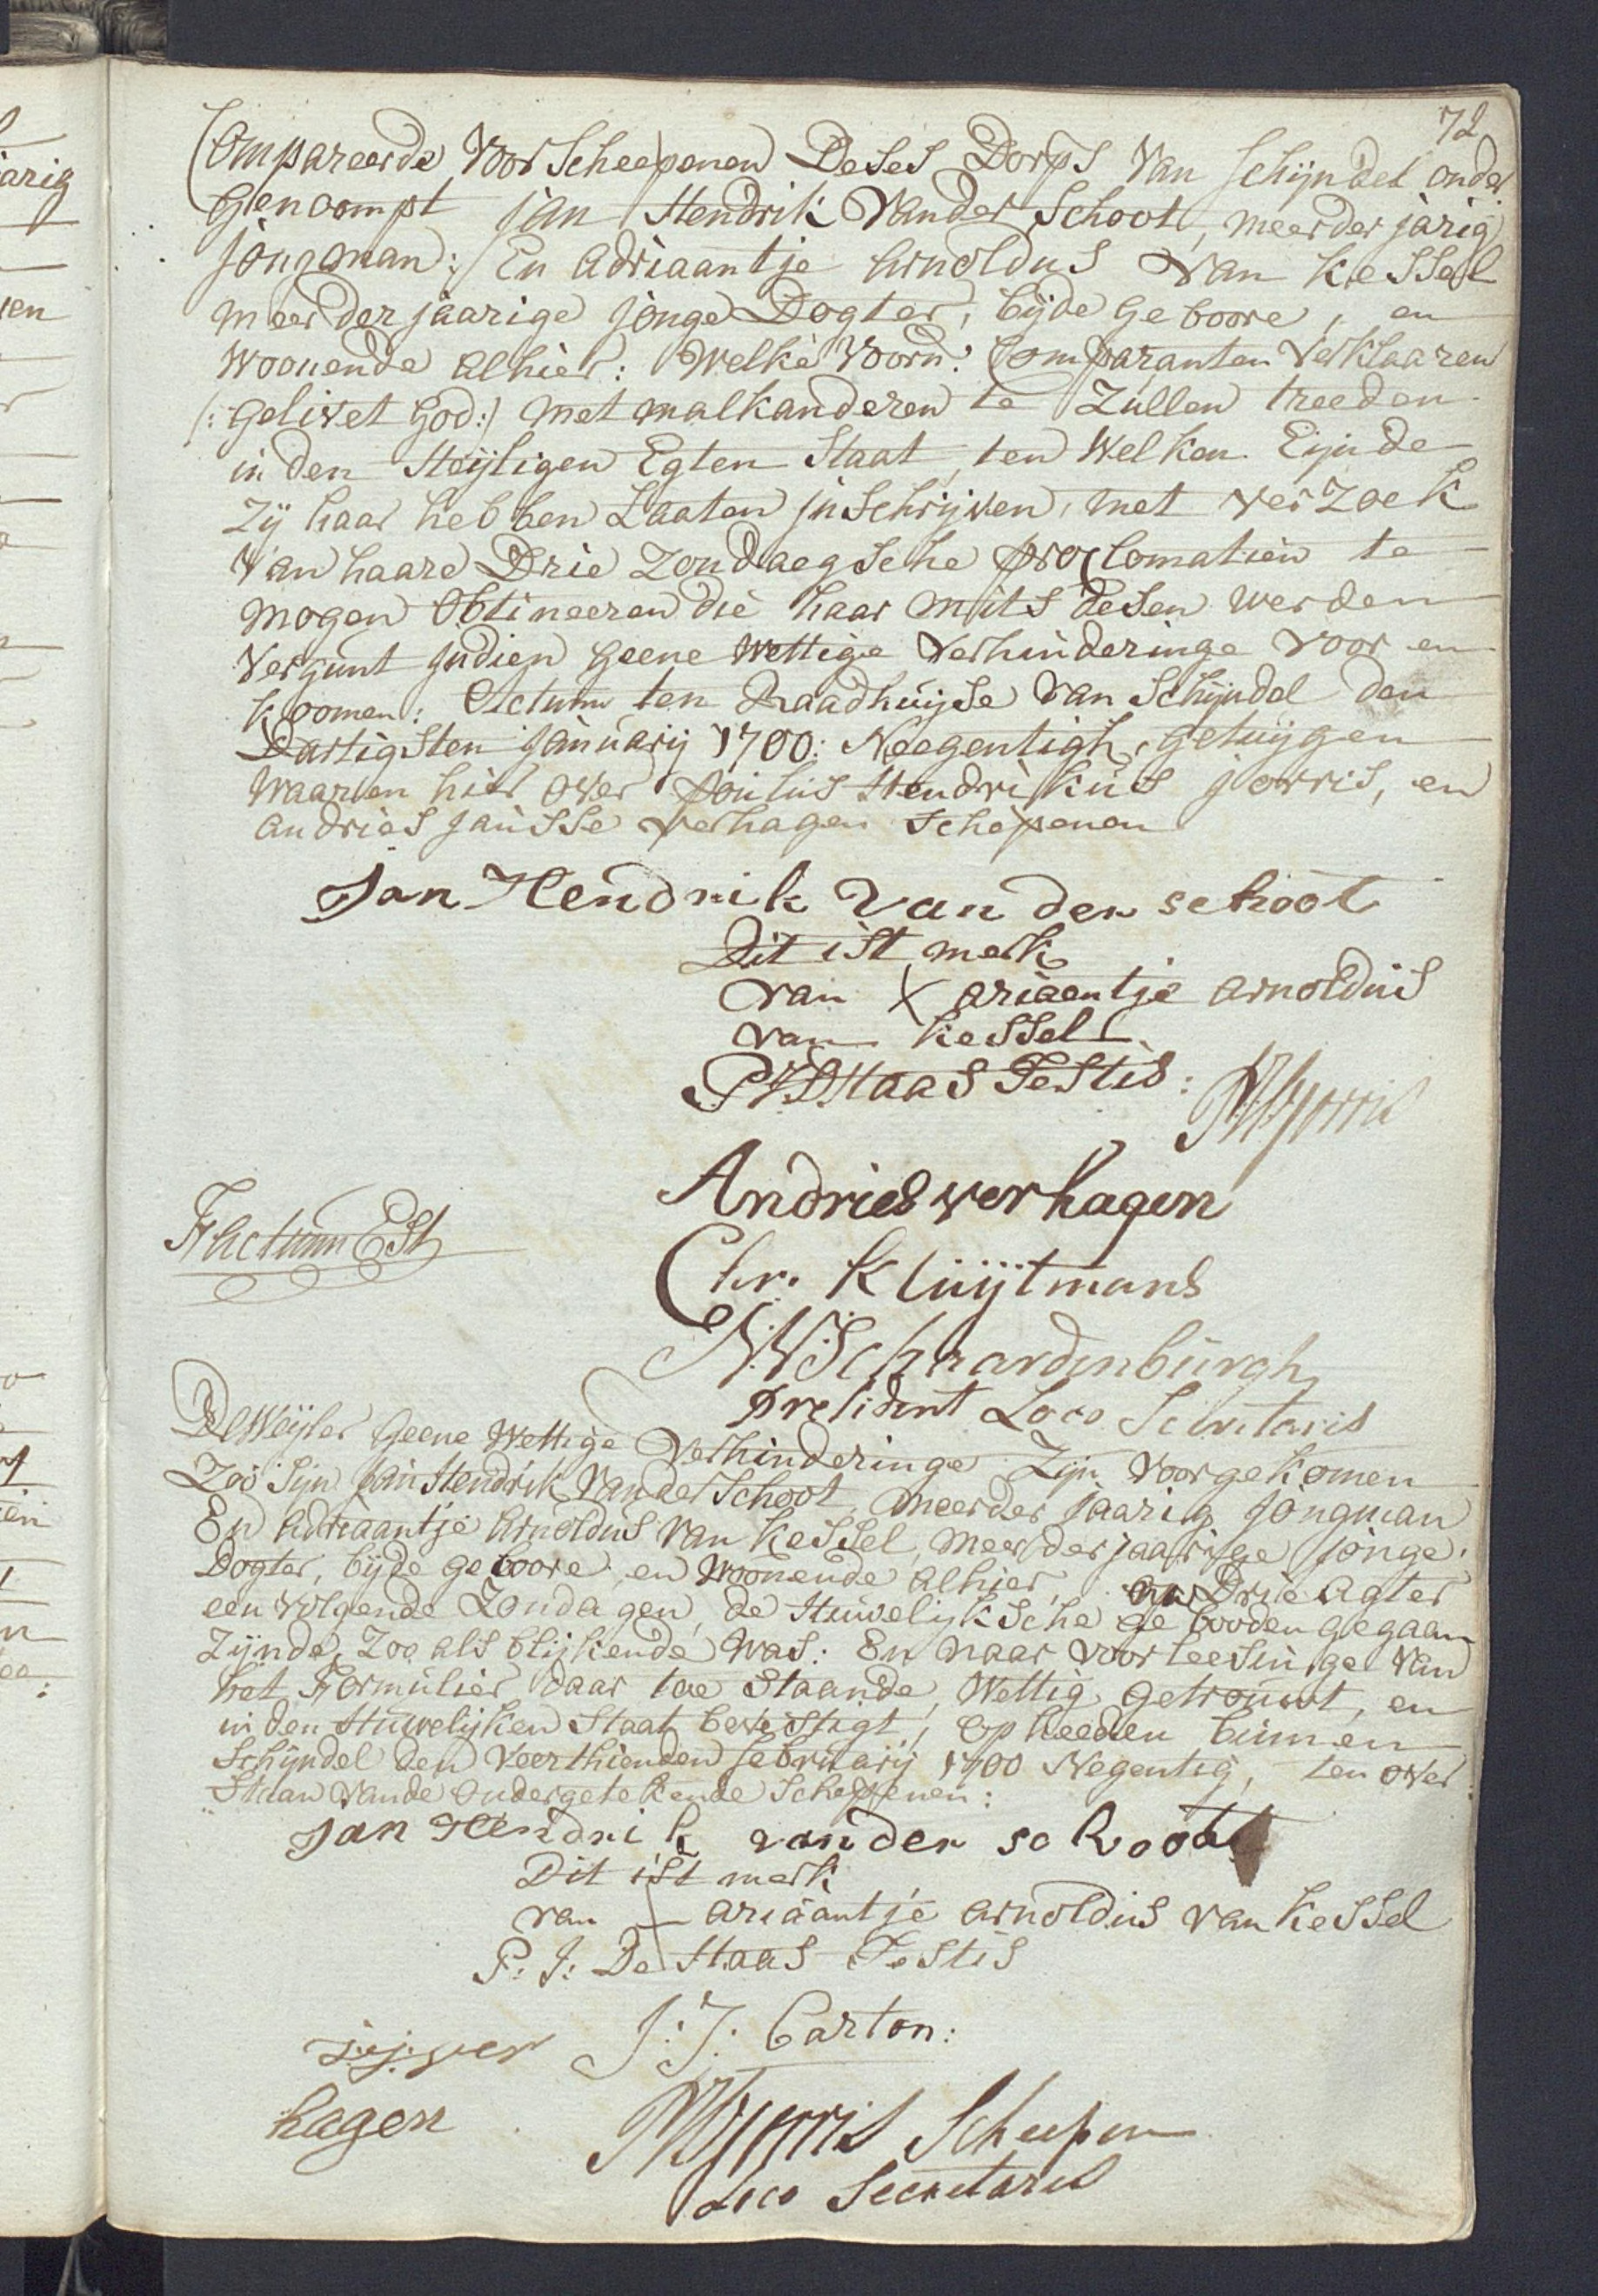 72
Compareerde Voor Scheepenen Deses Dorps Van Schijndel onder
Genoompt Jan Hendrik Van der Schoot, meerder jarig
jongman: En Adriaantje Arnoldus Van Kessel
meerderjaarige jonge Dogter, bijde geboore, en
woonende alhier: Welke Voorn: Comparanten Verklaaren
(: gelivet God:) met malkanderen te Zullen treeden
in den Heijligen Egten Staat, ten Welken Eijnde
Zij haar hebben Laaten inschrijven, met verzoek
Van haare Drie Zondaegsche proclomatien te
mogen Obtineeren die haar mits desen werden
Vergunt Indien geene Wettige Verhinderinge voor en
koomen: Actum ten Raadhuijse Van Schijndel den
Dartigsten Januarij 1700: Neegentigh, getuijgen
waaren hier over Poulus Hendrikus jorris, en
andries Jansse Verhagen Schepenen
Jan Hendrik van der schoot
Dit ist merk
van X ariaentje arnoldus
van Kessel
P J D Haas Testis:
P H Jorris
Andries verhagen
Factum Est
Chr. Kluijtmans
Schaardenburgh
President Loco Secretaris
DeWeijler geene Wettige Verhinderinge Zijn voorgekomen
Zoo Sijn Jan Hendrik Van der Schoot, meerder jaarig jongman
En Adriaantje Arnoldus van Kessel, meerderjaarige jonge
Dogter, bijde geboore, en Woonende alhier, na Drie agter
een volgende Zondagen, de Huwelijksche gebooden gegaan
Zijnde, Zoo als blijkende was: En naar voorleesinge van
het Formulier daar toe Staande, Wettig getrouwt, en
in den Huwelijken Staat bevestigt, op heeden binnen
Schijndel den Veerthienden februarij 1700 Negentig, ten over
Staan vande ondergetekende Schepenen:
Jan Hendrik van der schoot
Dit ist merk
van + ariaantje arnoldus van Kessel
P: J: De Haas Testis
J: J: ver
hagen
J: J. Carton:
P H Jorris Scheepen
Loco Secretaris